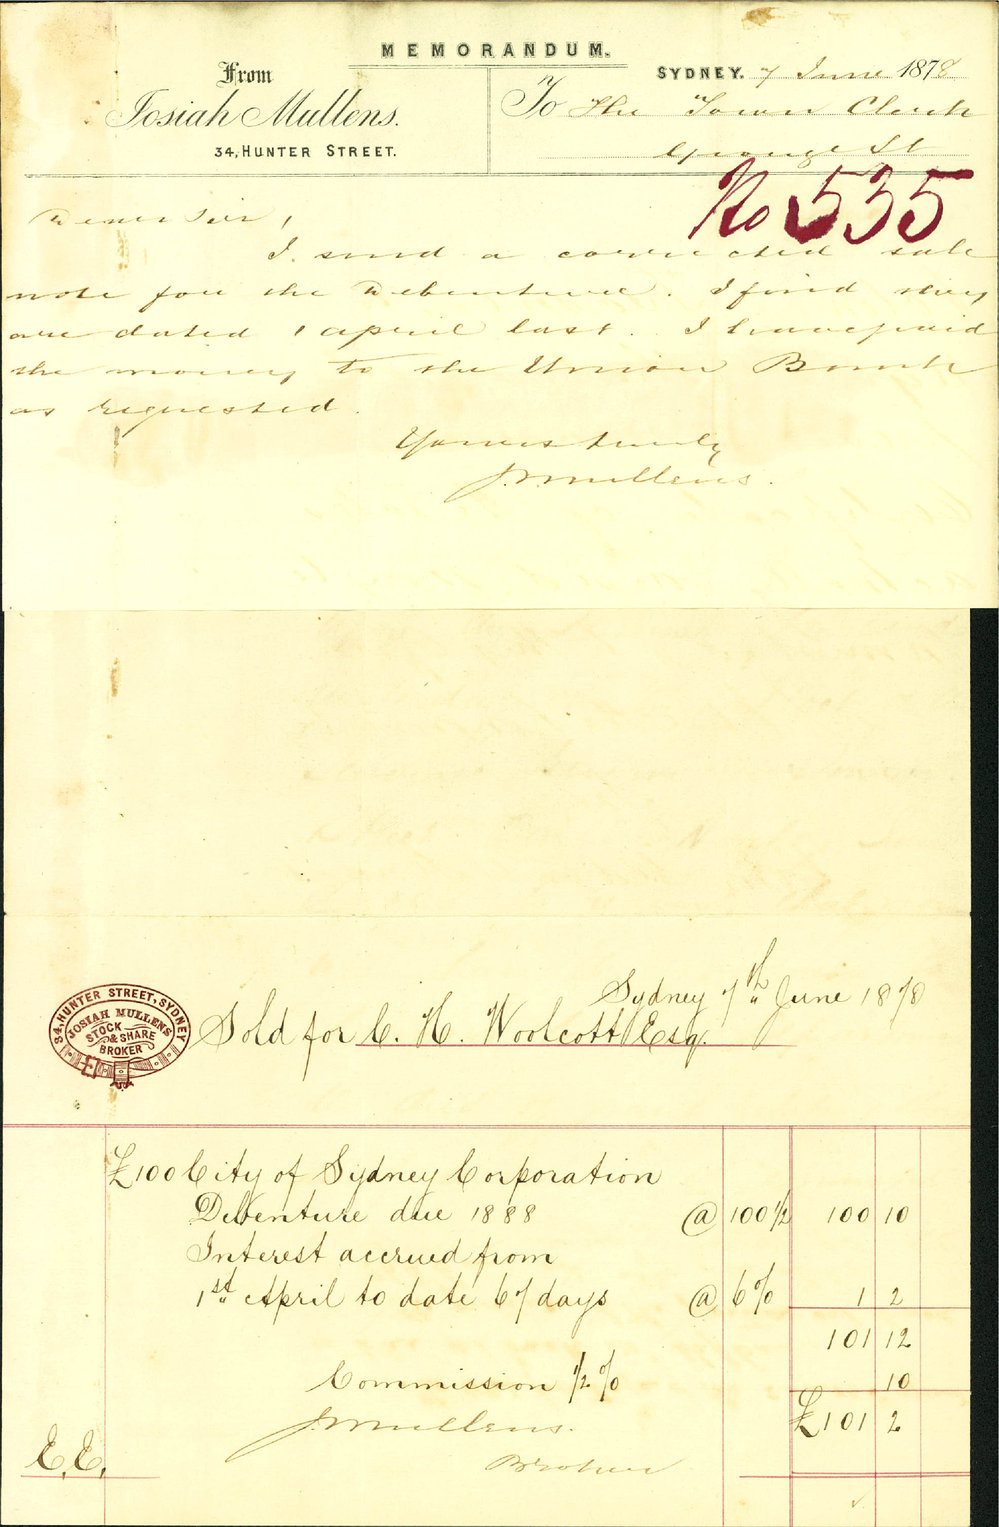 MEMORANDUM.
From
Josiah Mullens.
34, HUNTER STREET.
SYDNEY. 7 June 1878
To The Town Clerk
George St
No 535
Dear Sir,
I send a corrected sale
note for the Debenture. I find they
are dated 1 april last. I have paid
the money to the Union Bank
as requested.
Yours truly
J. Mullens.
Sydney 7th June 1878
34, HUNTER STREET, SYDNEY
JOSIAH MULLENS
STOCK
& SHARE
BROKER
Sold for C. H. Woolcott Esq.
£100 City of Sydney Corporation
Debenture due 1888 @ 100 1/2 100 10
Interest accrued from
1st April to date 67 days @ 6% 1 2
101 12
Commission 1/2 % 10
J Mullens. £101 2
E.E. Broker